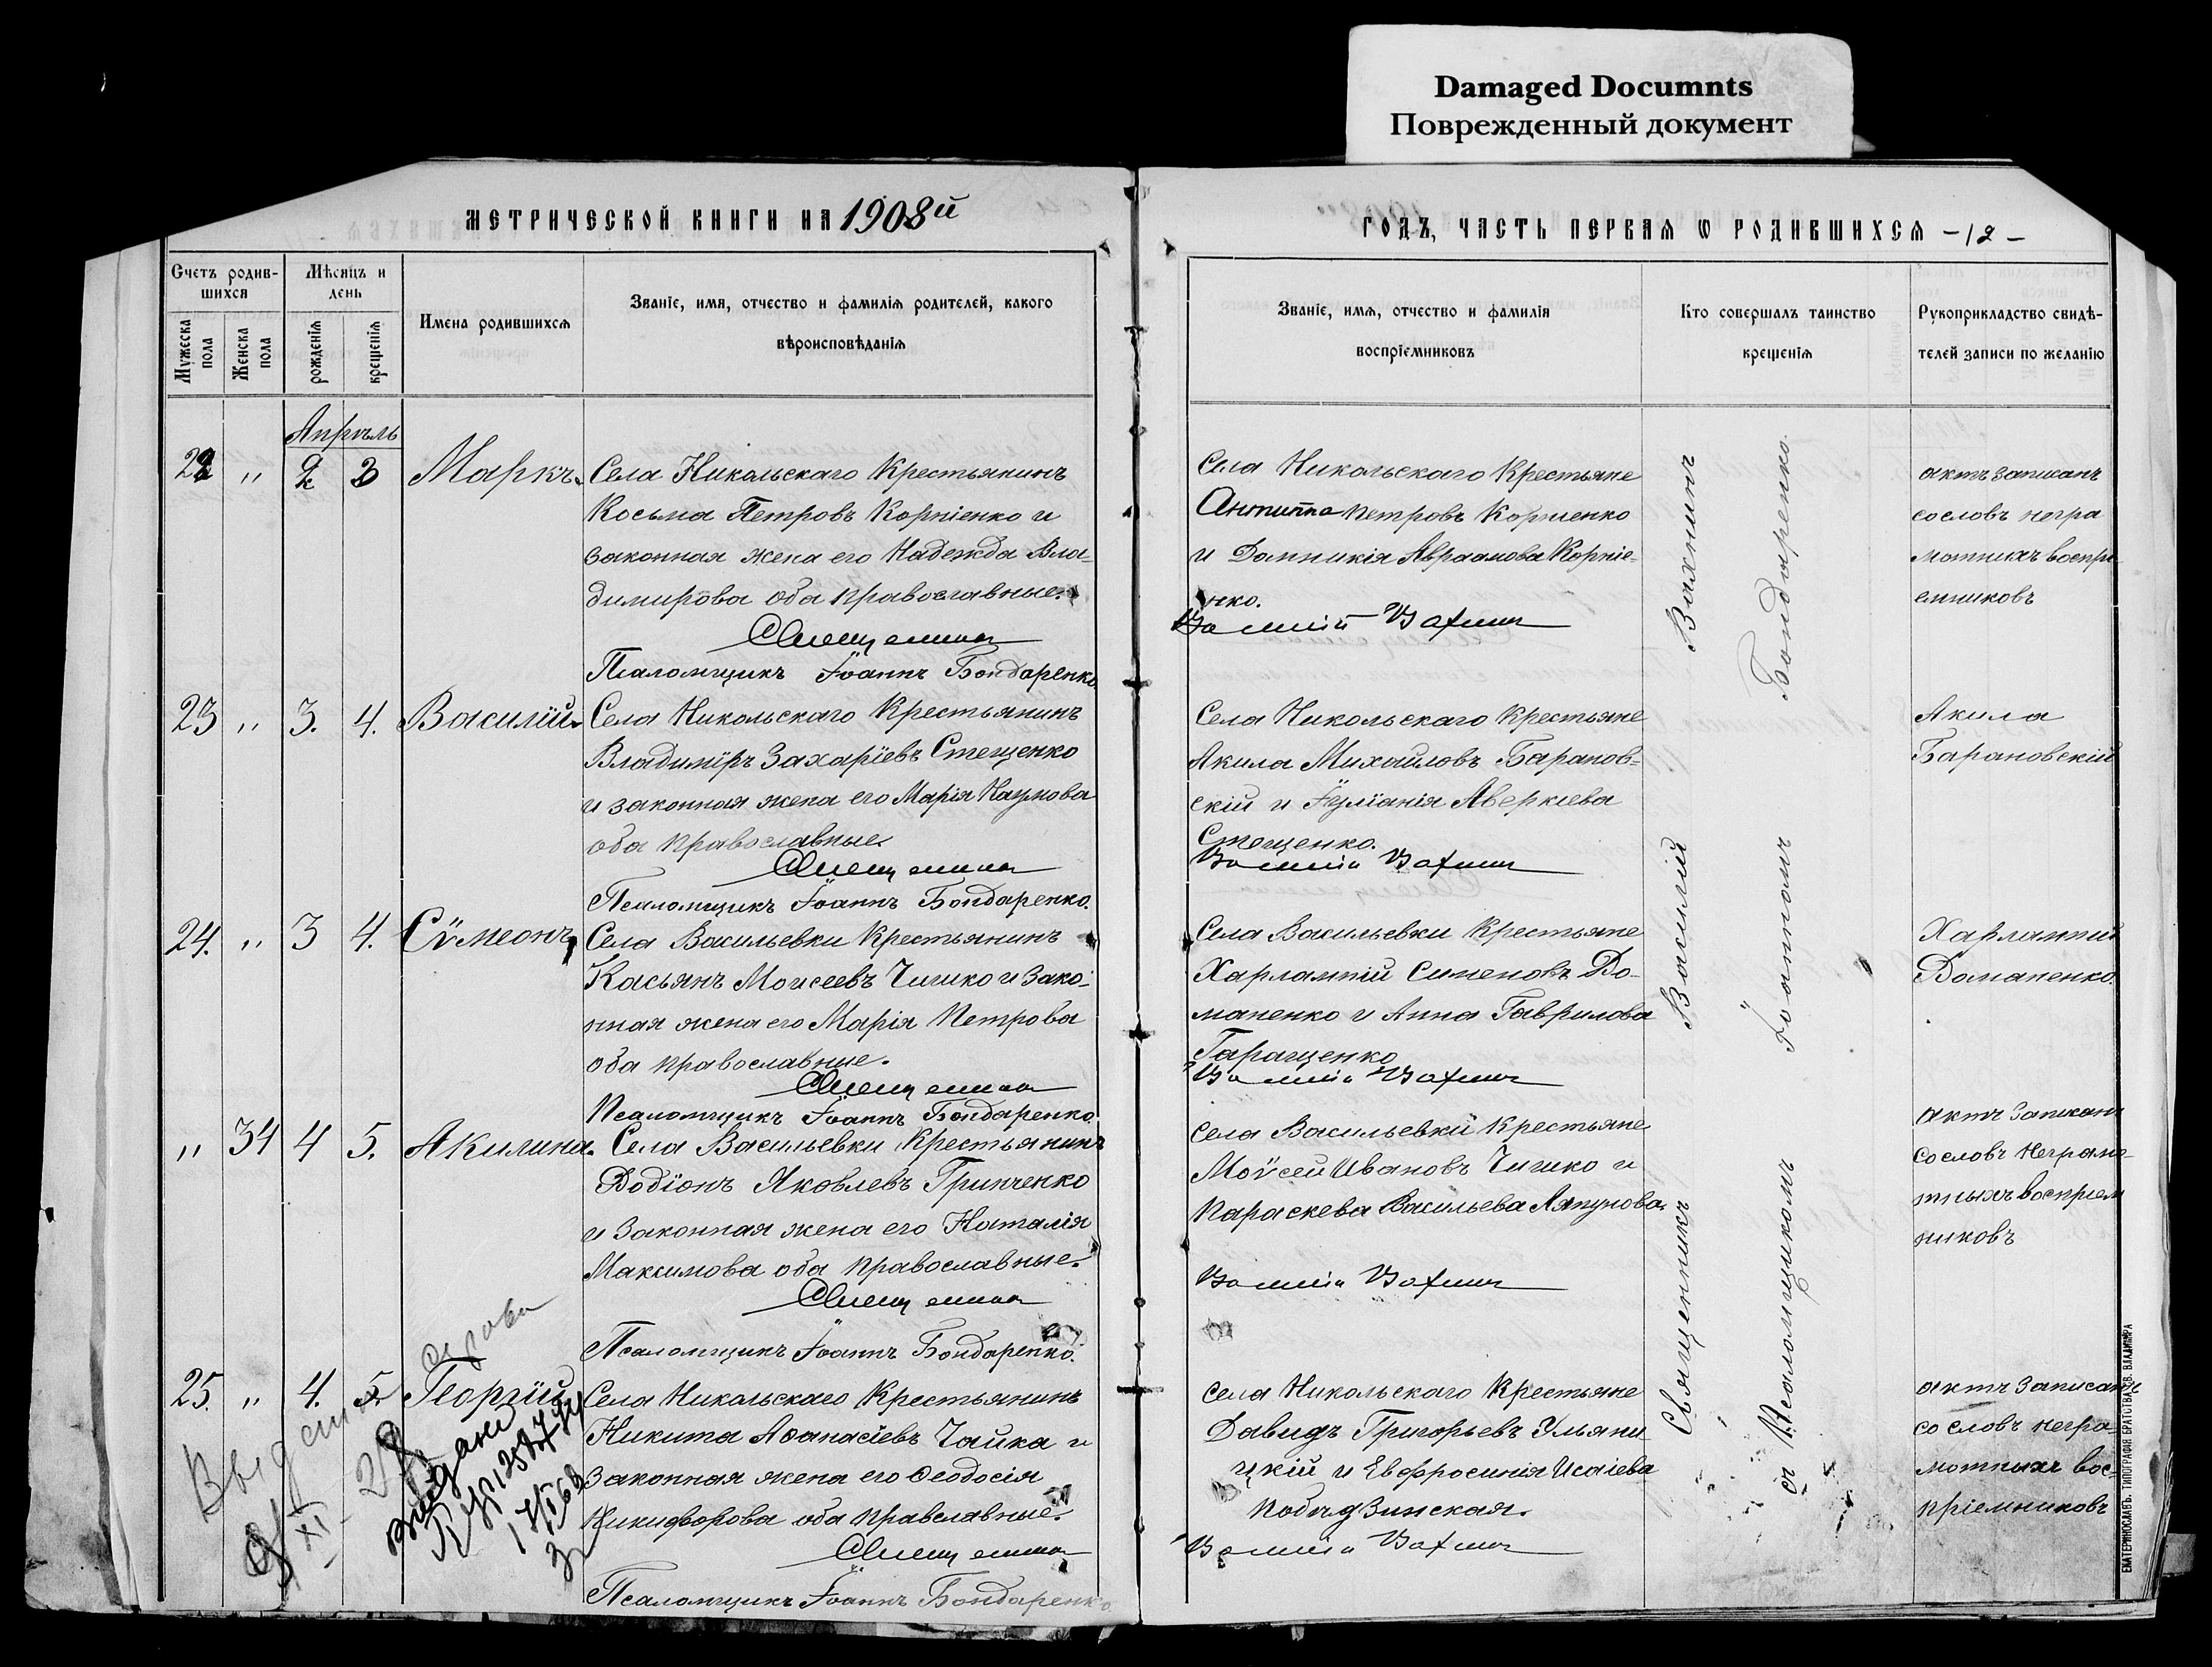 Damaged Documnts
Поврежденный документ
МЕТРИЧЕСКОЙ КНИГИ НА 1908й
Счетъ родив-
шихся
Мѣсяцъ и
день
Мужеска
пола
Женска
пола
рожденія
крещенія
Имена родившихся
Званіе, имя, отчество и фамилія родителей, какого
вѣроисповѣданія
Апрѣль
22 " 2 3 Маркъ. Села Никольскаго Крестьянинъ
Косьма Петровъ Корніенко и
законная жена его Надежда Вла-
димірова оба православные.
Священникъ
Псаломщикъ Іоаннъ Бондаренко.
23 " 3. 4. Василій. Села Никольскаго Крестьянинъ
Владиміръ Захаріевъ Стещенко
и законная жена его Марія Наумова
оба православные.
Священникъ
Псаломщикъ Іоаннъ Бондаренко.
24. " 3 4. Сѵмеонъ, Села Васильевки Крестьянинъ
Касьянъ Моисеевъ Чигико и зако-
нная жена его Марія Петрова
оба православные.
Священникъ
Псаломщикъ Іоаннъ Бондаренко.
" 31 4 5. Акилина. Села Васильевки Крестьянинъ
Родіонъ Яковлевъ Гринченко
и законная жена его Наталія
Максимова оба православные.
Священникъ
Псаломщикъ Іоаннъ Бондаренко.
25. " 4. 5. Георгій Села Никольскаго Крестьянинъ
Никита Аѳанасіевъ Чайка и
законная жена его Ѳеодосія
Никифорова оба православные.
Священникъ
Псаломщикъ Іоаннъ Бондаренко.
XI
28
ГОДЪ, ЧАСТЬ ПЕРВАЯ Ѡ РОДИВШИХСЯ -12-
Званіе, имя, отчество и фамилія
воспріемниковъ
Кто совершалъ таинство
крещенія
Рукоприкладство свидѣ-
телей записи по желанію
Села Никольскаго Крестьяне
Антипа Петровъ Корніенко
и Домникія Авраамова Корніе-
нко.
Василій Вахнинъ
актъ записанъ
со словъ негра
мотныхъ воспрі
емниковъ
Села Никольскаго Крестьяне
Акила Михайловъ Баранов-
скій и Іуліанія Аверкіева
Стещенко.
Василій Вахнинъ
Акила
Барановскій
Села Васильевки Крестьяне
Харлампій Сименовъ До-
маненко и Анна Гаврилова
Гаращенко
Василій Вахнинъ
Харлампій
Доманенко.
Села Васильевки Крестьяне
Моѵсей Ивановъ Чигико и
Параскева Васильева Ляпунова.
Василій Вахнинъ
актъ записанъ
со словъ неграмо-
тныхъ воспріем
никовъ
Села Никольскаго Крестьяне
Давидъ Григорьевъ Ульяни-
цкій и Евфросинія Исаіева
Побѣдзинская.
Василій Вахнинъ
актъ записанъ
со словъ негра-
мотныхъ вос-
пріемниковъ
Священникъ Василій Вахнинъ
съ Псаломщикомъ Іоанномъ Бондаренко.
ЕКАТЕРИНОСЛАВЪ. ТИПОГРАФІЯ БРАТСТВА СВ. ВЛАДИМІРА